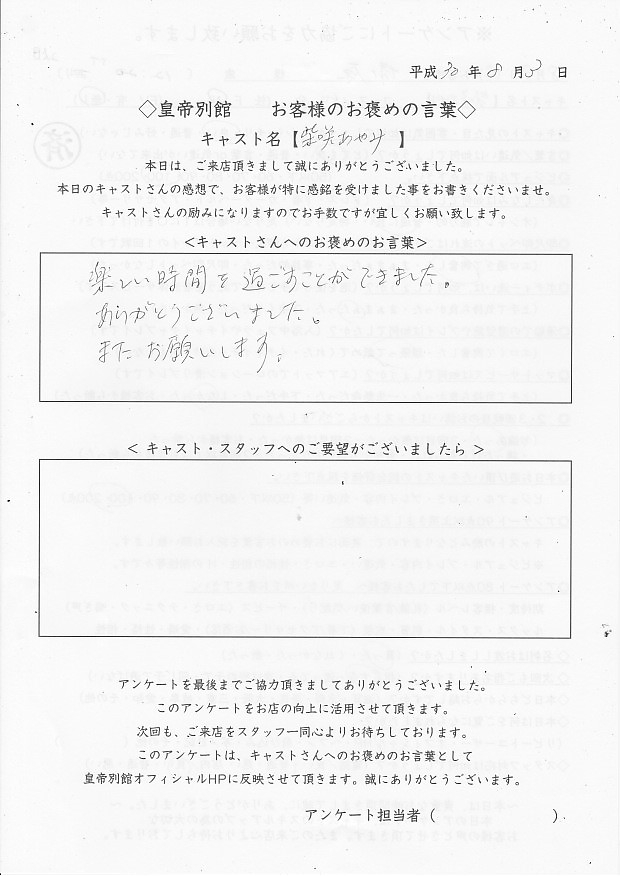 平成30年8月3日
◇皇帝別館　お客様のお褒めの言葉◇
キャスト名【柴咲あやみ】
本日は、ご来店頂きまして誠にありがとうございました。
本日のキャストさんの感想で、お客様が特に感銘を受けました事をお書きくださいませ。
キャストさんの励みになりますのでお手数ですが宜しくお願い致します。
＜キャストさんへのお褒めのお言葉＞
楽しい時間を過ごすことができました。
ありがとうございました。
またお願いします。
＜ キャスト・スタッフへのご要望がございましたら ＞
アンケートを最後までご協力頂きましてありがとうございました。
このアンケートをお店の向上に活用させて頂きます。
次回も、ご来店をスタッフ一同心よりお待ちしております。
このアンケートは、キャストさんへのお褒めのお言葉として
皇帝別館オフィシャルHPに反映させて頂きます。誠にありがとうございます。
アンケート担当者（　　　　　　）